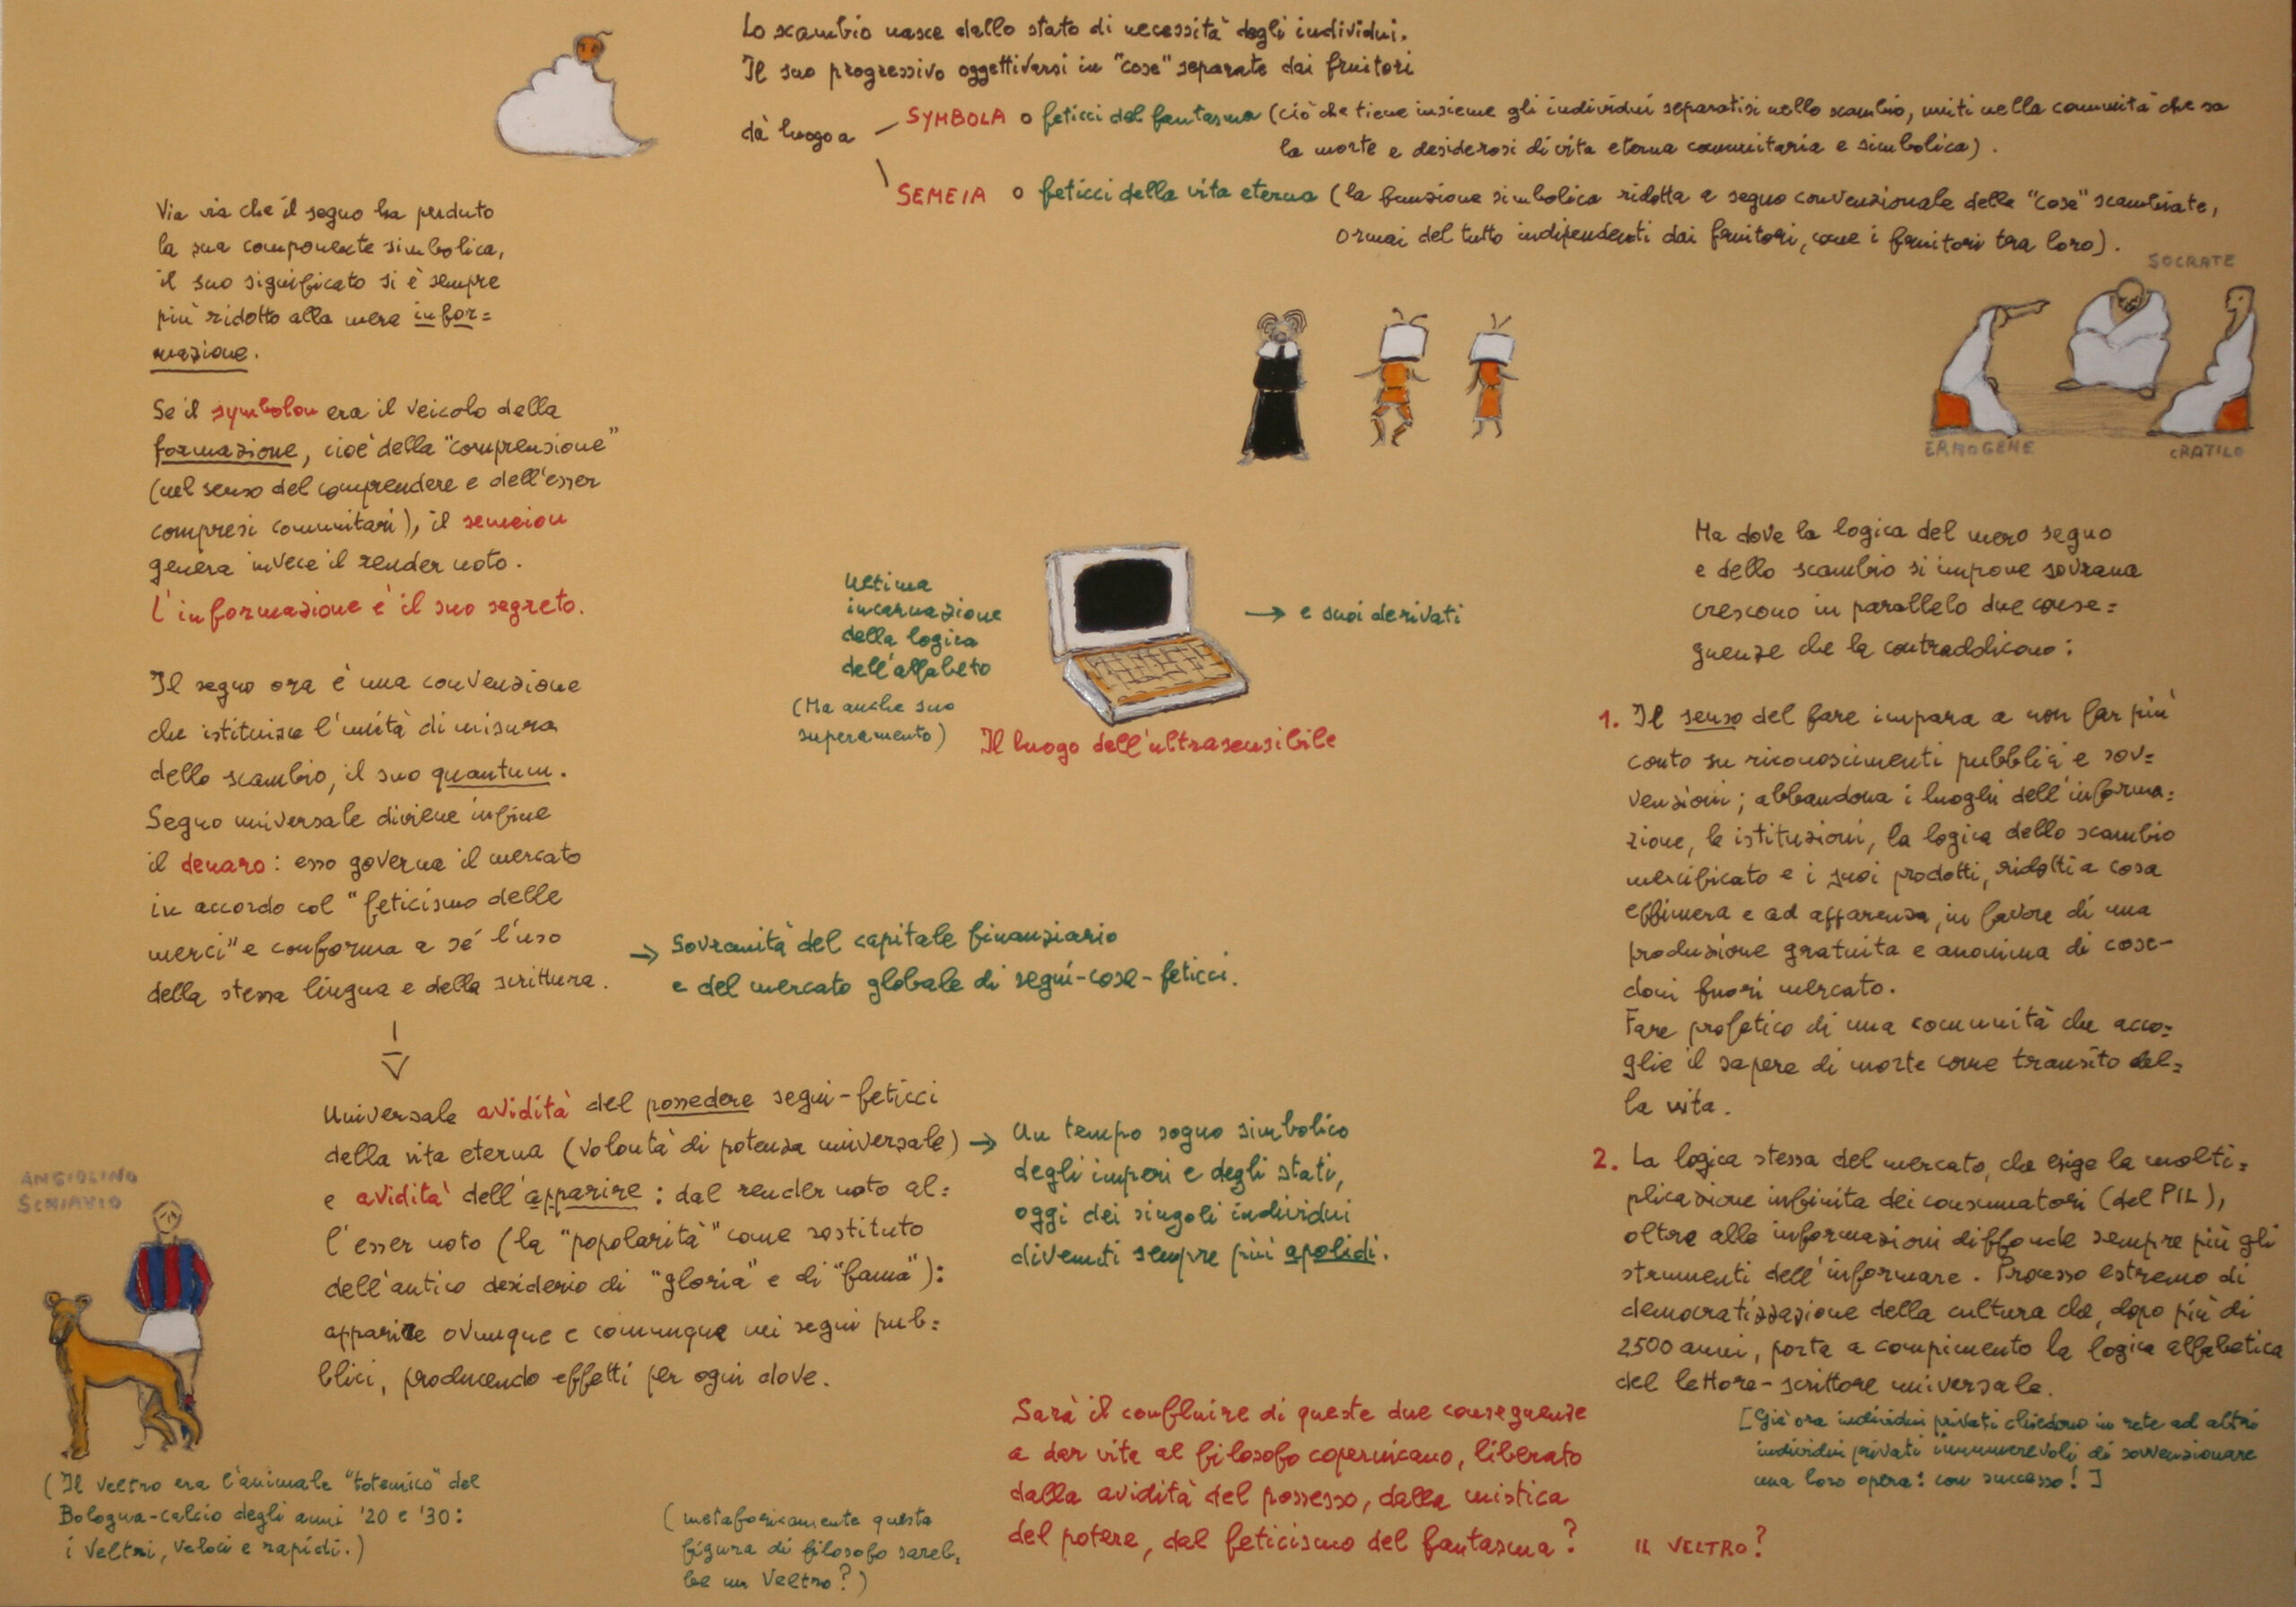 Lo scambio nasce dallo stato di necessità degli individui.
Il suo progressivo oggettivarsi in "cose" separate dai fruitori
dà luogo a
SYMBOLA o feticci del fantasma (ciò che tiene insieme gli individui separatisi nello scambio, uniti nella comunità che sa
la morte e desiderosi di vita eterna comunitaria e simbolica).
SEMEIA o feticci della vita eterna (la funzione simbolica ridotta a segno convenzionale delle "cose" scambiate,
ormai del tutto indipendenti dai fruitori, come i fruitori tra loro).
Via via che il segno ha perduto
la sua componente simbolica,
il suo significato si è sempre
più ridotto alla mera infor=
mazione.
Se il symbolon era il veicolo della
formazione, cioè della "comprensione"
(nel senso del comprendere e dell'esser
compresi comunitari), il semeion
genera invece il render noto.
L'informazione è il suo segreto.
Il segno ora è una convenzione
che istituisce l'unità di misura
dello scambio, il suo quantum.
Segno universale diviene infine
il denaro: esso governa il mercato
in accordo col "feticismo delle
merci" e conforma a sé l'uso
della stessa lingua e della scrittura.
→ Sovranità del capitale finanziario
e del mercato globale di segni-cose-feticci.
Universale avidità del possedere segni-feticci
della vita eterna (volontà di potenza universale) →
e avidità dell'apparire: dal render noto al=
l'esser noto (la "popolarità" come sostituto
dell'antico desiderio di "gloria" e di "fama"):
apparire ovunque e comunque nei segni pub=
blici, producendo effetti per ogni dove.
Un tempo sogno simbolico
degli imperi e degli stati,
oggi dei singoli individui
divenuti sempre più apolidi.
ANGIOLINO
SCHIAVIO
(Il veltro era l'animale "totemico" del
Bologna-calcio degli anni '20 e '30:
i Veltri, veloci e rapidi.)
ultima
incarnazione
della logica
dell'alfabeto
(Ma anche suo
superamento)
→ e suoi derivati
Il luogo dell'ultrasensibile
SOCRATE
ERMOGENE
CRATILO
Ma dove la logica del mero segno
e dello scambio si impone sovrana
crescono in parallelo due conse=
guenze che la contraddicono:
1. Il senso del fare impara a non far più
conto su riconoscimenti pubblici e sov=
venzioni; abbandona i luoghi dell'informa=
zione, le istituzioni, la logica dello scambio
mercificato e i suoi prodotti, ridotti a cosa
effimera e ad apparenza, in favore di una
produzione gratuita e anonima di cose-
doni fuori mercato.
Fare profetico di una comunità che acco=
glie il sapere di morte come transito del=
la vita.
2. La logica stessa del mercato, che esige la molti=
plicazione infinita dei consumatori (del PIL),
oltre alle informazioni diffonde sempre più gli
strumenti dell'informare. Processo estremo di
democratizzazione della cultura che, dopo più di
2500 anni, porta a compimento la logica alfabetica
del lettore-scrittore universale.
[Già ora individui privati chiedono in rete ad altri
individui privati innumerevoli di sovvenzionare
una loro opera: con successo!]
Sarà il confluire di queste due conseguenze
a dar vita al filosofo copernicano, liberato
dalla avidità del possesso, dalla mistica
del potere, dal feticismo del fantasma?
IL VELTRO?
(metaforicamente questa
figura di filosofo sareb=
be un Veltro?)